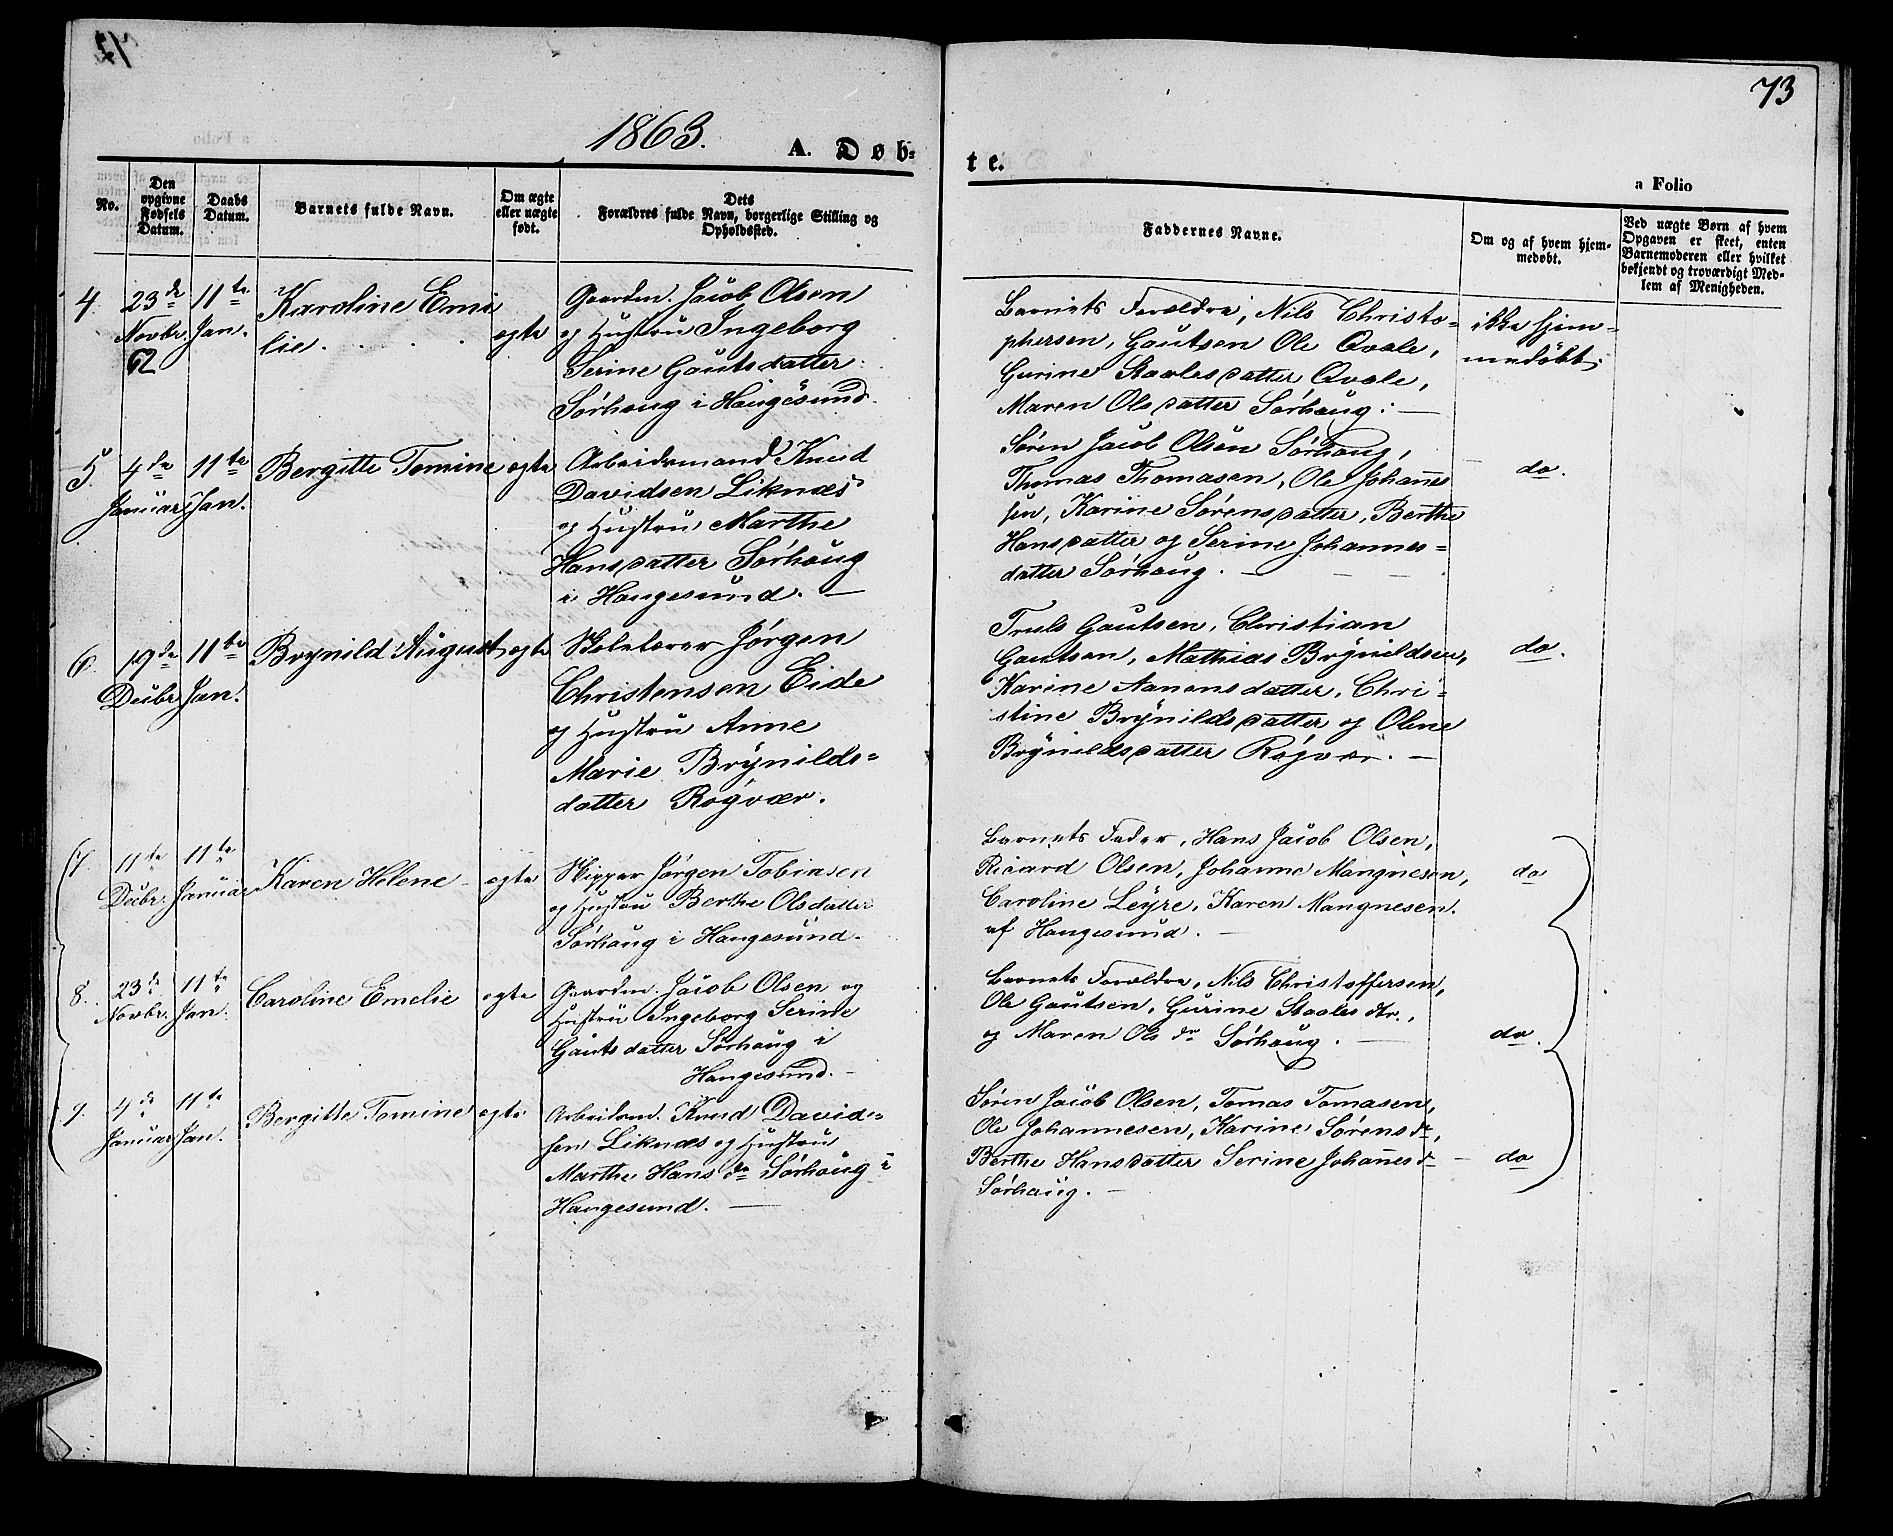 73
1863.
A. Døb-
te.
a Folio
No.
Den
opgivne
Fødsels
Datum.
Daabs
Datum.
Barnets fulde Navn.
Om ægte
eller uægte
født.
Dets
Forældres fulde Navn, borgerlige Stilling og
Opholdssted.
Faddernes Navne.
Om og af hvem hjem-
medøbt.
Ved uægte Børn af hvem
Opgaven er skeet, enten
Barnemoderen eller hvilket
bekjendt og troværdigt Med-
lem af Menigheden.
4.
23de
Novbr.
62
11te
Jan.
Karoline Emi
lie.
egte
Gaardm. Jacob Olsen
og Hustru Ingeborg
Serine Gautsdatter
Sørhaug i Haugesund.
Barnets Forældre, Nils Christo-
phersen, Gautsen Ole Qvale,
Gurine Staalesdatter Qvale,
Maren Olsdatter Sørhaug. —
ikke hjem-
medøbt.
5.
4de
Januar
11te
Jan.
Bergitte Tomine
egte
Arbeidsmand Knud
Davidsen Liknæs
og Hustru Marthe
Hansdatter Sørhaug
i Haugesund. —
Søren Jacob Olsen Sørhaug,
Thomas Thomasen, Ole Johannes
sen, Karine Sørensdatter, Berthe
Hansdatter og Serine Johannes-
datter Sørhaug. —
do.
6.
19de
Decbr.
11te
Jan.
Brynild August
egte
Jørgen
Christensen Eide
og Hustru Anne
Marie Brynilds-
datter Røgvær.
Truls Gautsen, Christian
Gautsen, Mathias Brynildsen,
Karine Aanensdatter, Chri-
stine Brynildsdatter og Olene
Brynildsdatter Røgvær. —
do.
7
11te
Decbr.
11te
Januar
Karen Helene
egte
Skipper Jørgen Tobiasen
og Hustru Berthe Olsdatter
Sørhaug i Haugesund.
Barnets Fader, Hans Jacob Olsen,
Ricard Olsen, Johanne Mangnesen,
Caroline Leyre, Karen Mangnesen.
af Haugesund. —
do
8.
23de
Novbr.
11te
Jan.
Caroline Emelie
egte
Gaardm. Jacob Olsen og
Hustru Ingeborg Serine
Gautsdatter Sørhaug i
Haugesund. —
Barnets Forældre, Nils Christoffersen,
Ole Gautsen, Gurine Staalesdtr.,
og Maren Olsdr Sørhaug. —
do.
9.
4de
Januar
11te
Jan.
Bergitte Tomine
egte
Arbeidsm. Knud David-
sen Liknæs og Hustru
Marthe Hansdr Sørhaug i
Haugesund. —
Søren Jacob Olsen, Tomas Tomasen,
Ole Johannesen, Karine Sørensdr,
Berthe Hansdatter Serine Johannesdr
Sørhaug. —
do